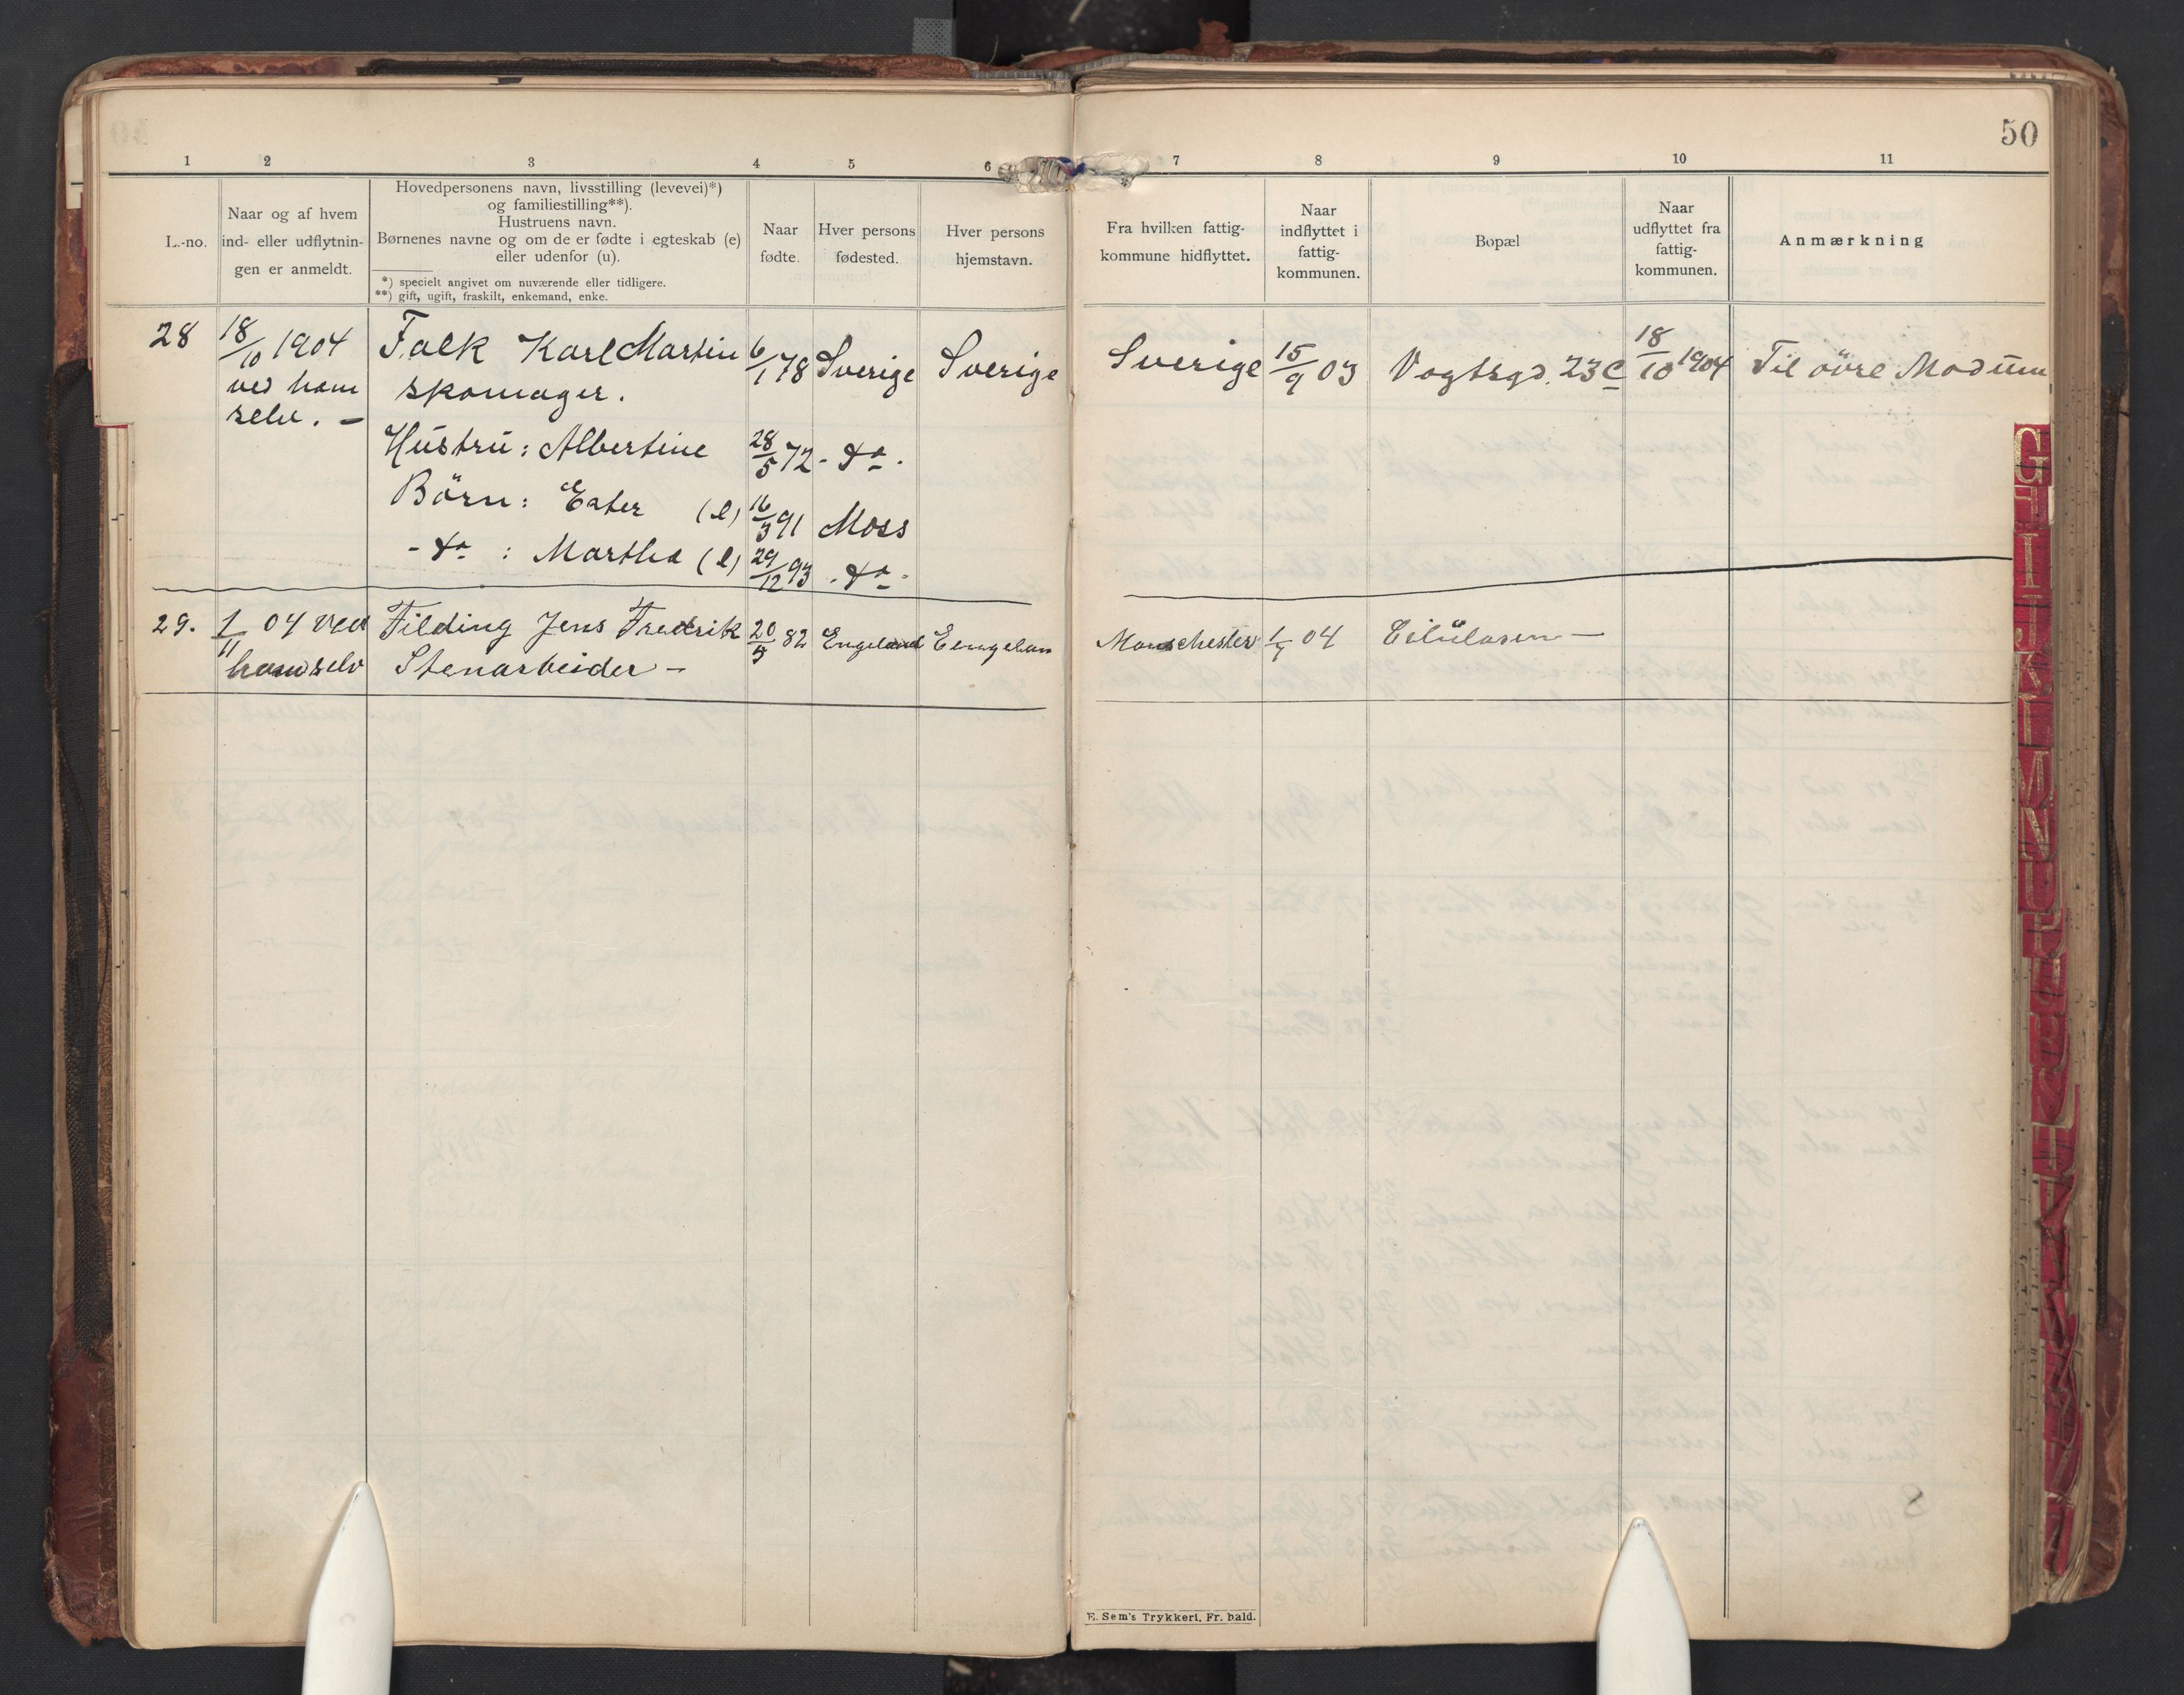 50
1 2 3 4 5 6 7 8 9 10 11
L.-no.
Naar og af hvem
ind- eller udflytnin-
gen er anmeldt.
Hovedpersonens navn, livsstilling (levevei)*)
og familiestilling**).
Hustruens navn.
Børnenes navne og om de er fødte i egteskab (e)
eller udenfor (u).
*) specielt angivet om nuværende eller tidligere.
**) gift, ugift, fraskilt, enkemand, enke.
Naar
fødte.
Hver persons
fødested.
Hver persons
hjemstavn.
Fra hvilken fattig-
kommune hidflyttet.
Naar
indflyttet i
fattig-
kommunen.
Bopæl
Naar
udflyttet fra
fattig-
kommunen.
Anmærkning
28 18/10 1904 Falk Karl Martin 6/1 78 Sverige Sverige Sverige 15/9 03 Vogtsgd. 23c 18/10 1904 Til övre Modum
ved ham skomager.
selv. -
Hustru: Albertine 28/5 72 - do -
Börn: Ester (e) 16/3 91 Moss
- do : Martha (e) 29/12 93 - do -
29. 1/11 04 ved Filding Jens Fredrik 20/5 82 Engeland Eengelan Manschester 04
ham selv Stenarbeider -
E. Sem's Trykkeri, Fr. hald.
G
I
J
K
L
M
N